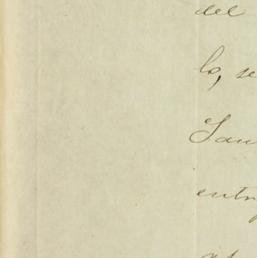 del
lo, se
San
entr